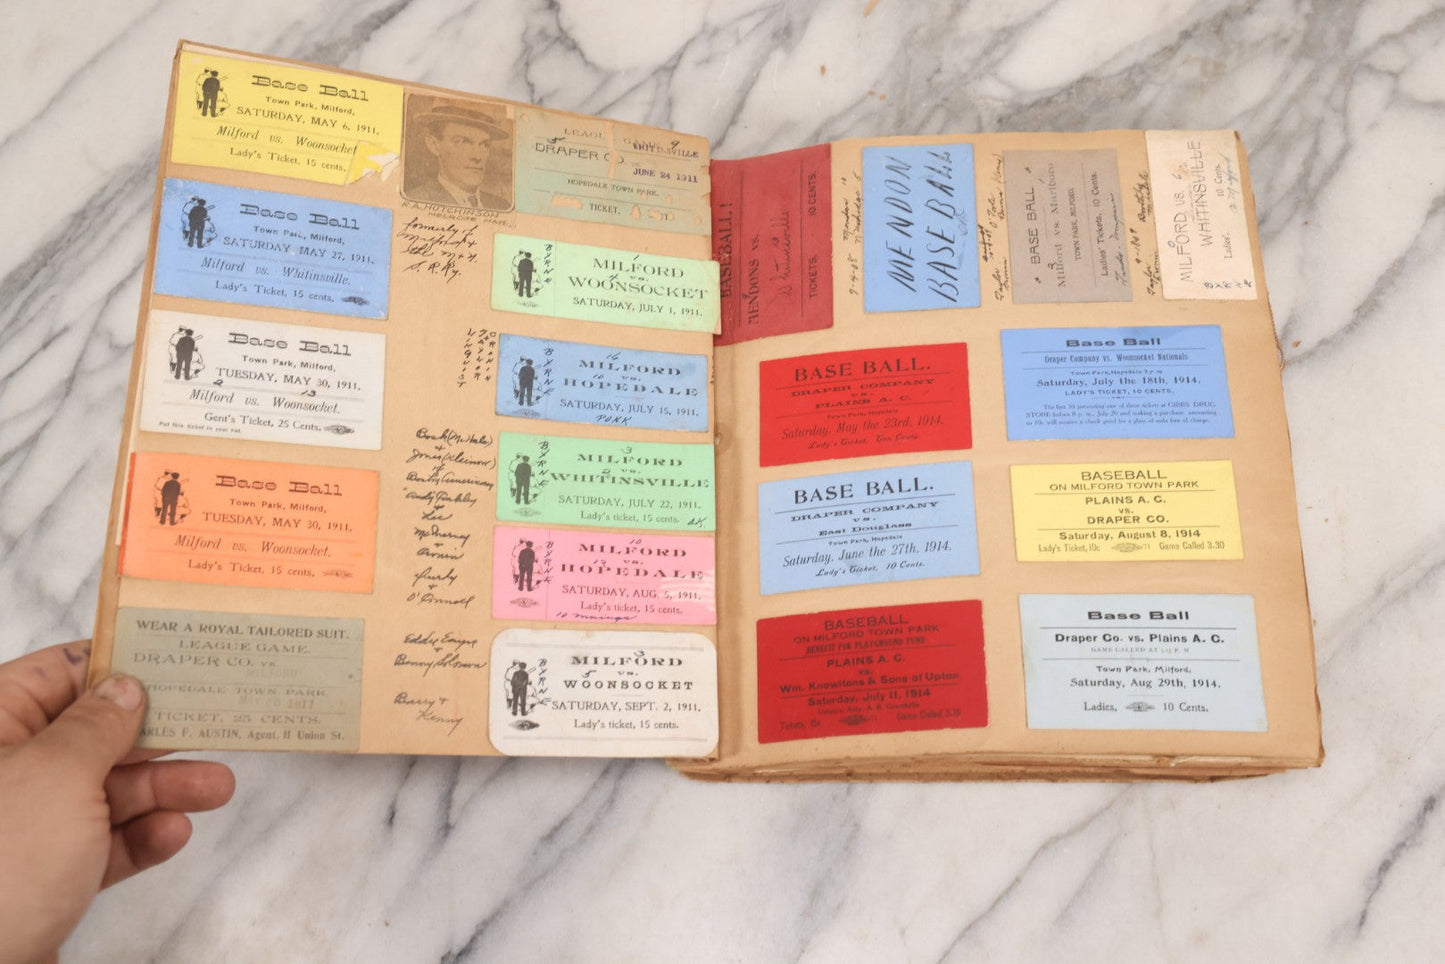 Base Ball
Town Park, Milford,
SATURDAY, MAY 6, 1911.
Milford vs. Woonsocket
Lady's Ticket, 15 cents.
Base Ball
Town Park, Milford,
SATURDAY, MAY 27, 1911.
Milford vs. Whitinsville.
Lady's Ticket, 15 cents.
Base Ball
Town Park, Milford,
TUESDAY, MAY 30, 1911.
2 13
Milford vs. Woonsocket.
Gent's Ticket, 25 Cents.
Put this ticket in your hat.
Base Ball
Town Park, Milford,
TUESDAY, MAY 30, 1911.
Milford vs. Woonsocket.
Lady's Ticket, 15 cents.
WEAR A ROYAL TAILORED SUIT.
LEAGUE GAME.
DRAPER CO. vs.
MILFORD
HOPEDALE TOWN PARK.
MAY 30 1911
TICKET, 25 CENTS.
ARLES F. AUSTIN, Agent, 11 Union St.
R. A. HUTCHINSON
formerly of
Milford &
the M. & U.
S. R. Ry.
LEAGU GAME
5 9
DRAPER CO. vs.
WHITINSVILLE
JUNE 24 1911
HOPEDALE TOWN PARK.
TICKET,
BYRNE
1
MILFORD
vs.
4
WOONSOCKET
SATURDAY, JULY 1, 1911.
BYRNE
16
MILFORD
vs.
HOPEDALE
SATURDAY, JULY 15, 1911.
PUNK
BYRNE
3
MILFORD
2 vs.
WHITINSVILLE
SATURDAY, JULY 22, 1911.
Lady's ticket, 15 cents.
O.K.
BYRNE
10
MILFORD
12 vs.
HOPEDALE
SATURDAY, AUG. 5, 1911.
Lady's ticket, 15 cents.
10 innings
BYRNE
3
MILFORD
vs.
5
WOONSOCKET
SATURDAY, SEPT. 2, 1911.
Lady's ticket, 15 cents.
Lee
&
O'Connell
Barry &
Kenny
BASEBALL!
MENDONS vs.
Whitinsville
TICKETS, 10 CENTS.
MENDON
BASEBALL
BASE BALL
Milford vs. Marlboro
TOWN PARK, MILFORD
Ladies' Tickets, 10 Cents.
MILFORD vs.
WHITINSVILLE
Ladies' 10 Cents.
BASE BALL.
DRAPER COMPANY
vs.
PLAINS A. C.
Town Park, Hopedale
Saturday, May the 23rd, 1914.
Lady's Ticket, Ten Cents.
BASE BALL.
DRAPER COMPANY
VS.
East Douglass
Town Park, Hopedale
Saturday, June the 27th, 1914.
Lady's Ticket, 10 Cents.
BASEBALL
ON MILFORD TOWN PARK
BENEFIT FOR PLAYGROUND FUND
PLAINS A. C.
vs.
Wm. Knowltons & Sons of Upton
Saturday, July 11, 1914
Tickets, 15c
Game Called 3.15
Base Ball
Draper Company vs. Woonsocket Nationals
Town Park, Hopedale
Saturday, July the 18th, 1914.
LADY'S TICKET, 10 CENTS.
The last 10 presenting one of these tickets at GIBBS' DRUG
STORE before 8 p. m., July 20 and making a purchase amounting
to 10c will receive a check good for a glass of soda free of charge.
BASEBALL
ON MILFORD TOWN PARK
PLAINS A. C.
vs.
DRAPER CO.
Saturday, August 8, 1914
Lady's Ticket, 10c
Game Called 3.30
Base Ball
Draper Co. vs. Plains A. C.
GAME CALLED AT 3.15 P. M.
Town Park, Milford.
Saturday, Aug 29th, 1914.
Ladies, 10 Cents.